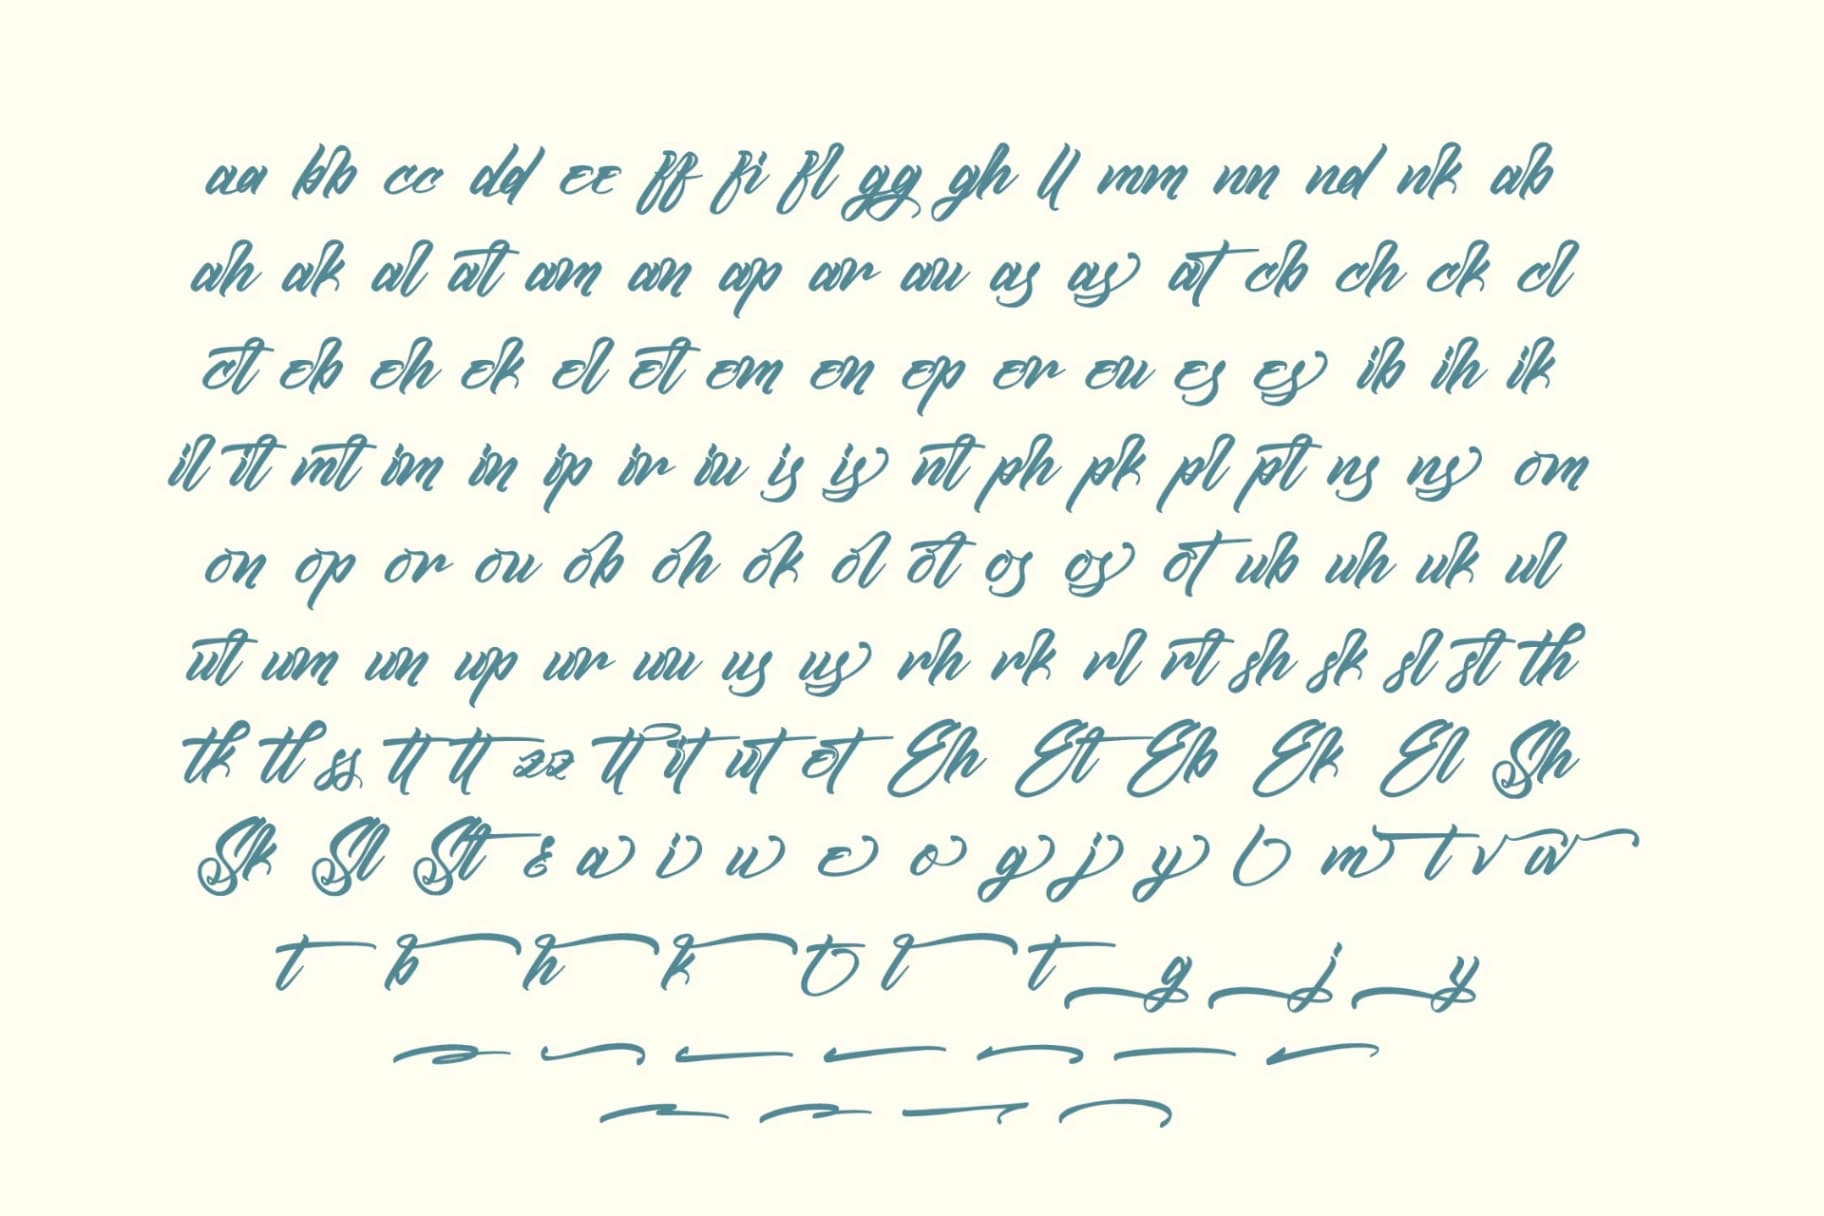 aa bb cc dd ee ff fi fl gg gh ll mm nn nd nk ab
ah ak al at am an ap ar au as as at cb ch ck cl
ct eb eh ek el et em en ep er eu es es ib ih ik
il it mt im in ip ir iu is is nt ph pk pl pt ns ns om
on op or ou ob oh ok ol ot os os ot ub uh uk ul
ut um un up ur uu us us rh rk rl rt sh sk sl st th
tk tl ss tt tt zz tt it ut et Eh Et Eb Ek El Sh
Sk Sl St & a i u e o g j y l m t v w
t b h k t l t g j y